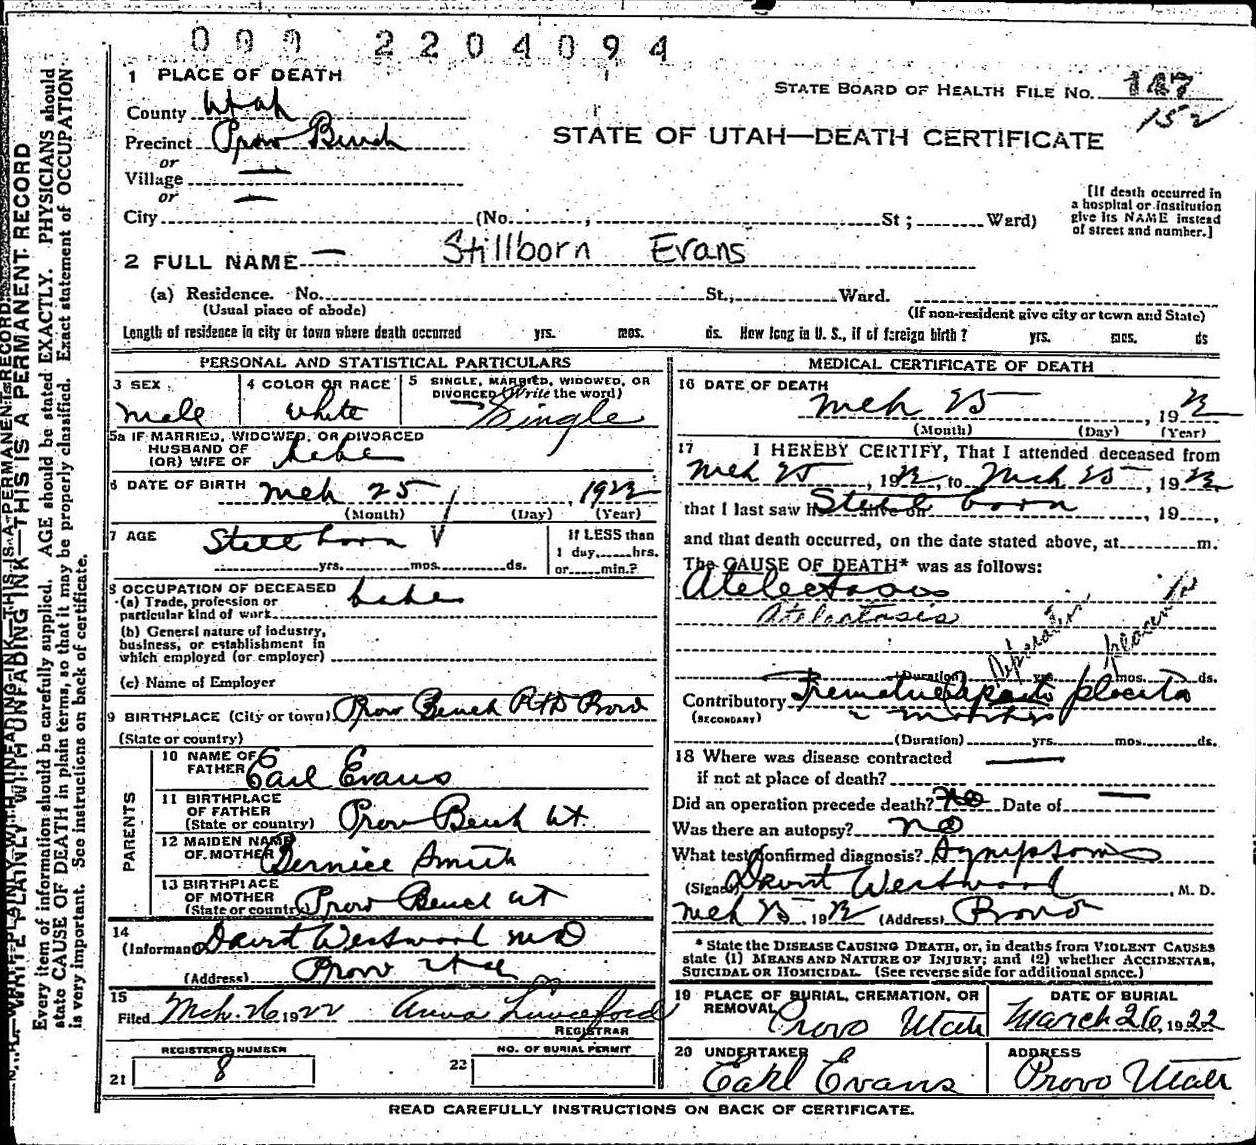 000 2204094
1 PLACE OF DEATH
STATE BOARD OF HEALTH FILE NO. 147
152
County Utah
STATE OF UTAH—DEATH CERTIFICATE
Precinct Provo Bench
or
Village —
or
City — (No. , St ; Ward)
[If death occurred in
a hospital or institution
give its NAME instead
of street and number.]
2 FULL NAME — Stillborn Evans
(a) Residence. No. St., Ward.
(Usual place of abode) (If non-resident give city or town and State)
Length of residence in city or town where death occurred yrs. mos. ds. How long in U. S., if of foreign birth? yrs. mos. ds
PERSONAL AND STATISTICAL PARTICULARS
3 SEX 4 COLOR OR RACE 5 SINGLE, MARRIED, WIDOWED, OR
DIVORCED (Write the word)
Male White Single
5a IF MARRIED, WIDOWED, OR DIVORCED
HUSBAND OF
(OR) WIFE OF babe
6 DATE OF BIRTH Mch 25 1922
(Month) (Day) (Year)
7 AGE Still born If LESS than
1 day,......hrs.
yrs. mos. ds. or......min.?
8 OCCUPATION OF DECEASED babe
(a) Trade, profession or
particular kind of work
(b) General nature of industry,
business, or establishment in
which employed (or employer)
(c) Name of Employer
9 BIRTHPLACE (City or town) Provo Bench RFD Provo
(State or country)
PARENTS
10 NAME OF
FATHER Earl Evans
11 BIRTHPLACE
OF FATHER
(State or country) Provo Bench Ut
12 MAIDEN NAME
OF MOTHER Bernice Smith
13 BIRTHPLACE
OF MOTHER
(State or country) Provo Bench Ut
14
(Informant) David Westwood MD
(Address) Provo Utah
15
Filed Mch. 26 1922 Anna Lunceford
REGISTRAR
REGISTERED NUMBER NO. OF BURIAL PERMIT
21 8 22
MEDICAL CERTIFICATE OF DEATH
16 DATE OF DEATH
Mch 25 , 1922
(Month) (Day) (Year)
17 I HEREBY CERTIFY, That I attended deceased from
Mch 25, 1922, to Mch 25, 1922
that I last saw h alive on Still born , 19 ,
and that death occurred, on the date stated above, at m.
The CAUSE OF DEATH* was as follows:
Atelectasis
Atelectasis
Separation placenta
(Duration) yrs. mos. ds.
Contributory Premature placenta
(SECONDARY)
(Duration) yrs. mos. ds.
18 Where was disease contracted
if not at place of death? —
Did an operation precede death? no Date of —
Was there an autopsy? no
What test confirmed diagnosis? Symptoms
(Signed) David Westwood , M. D.
Mch 25, 1922 (Address) Provo
* State the DISEASE CAUSING DEATH, or, in deaths from VIOLENT CAUSES
state (1) MEANS AND NATURE OF INJURY; and (2) whether ACCIDENTAL,
SUICIDAL OR HOMICIDAL. (See reverse side for additional space.)
19 PLACE OF BURIAL, CREMATION, OR
REMOVAL DATE OF BURIAL
Provo Utah March 26, 1922
20 UNDERTAKER ADDRESS
Earl Evans Provo Utah
READ CAREFULLY INSTRUCTIONS ON BACK OF CERTIFICATE.
WRITE PLAINLY WITH UNFADING INK—THIS IS A PERMANENT RECORD
Every item of information should be carefully supplied. AGE should be stated EXACTLY. PHYSICIANS should
state CAUSE OF DEATH in plain terms, so that it may be properly classified. Exact statement of OCCUPATION
is very important. See instructions on back of certificate.